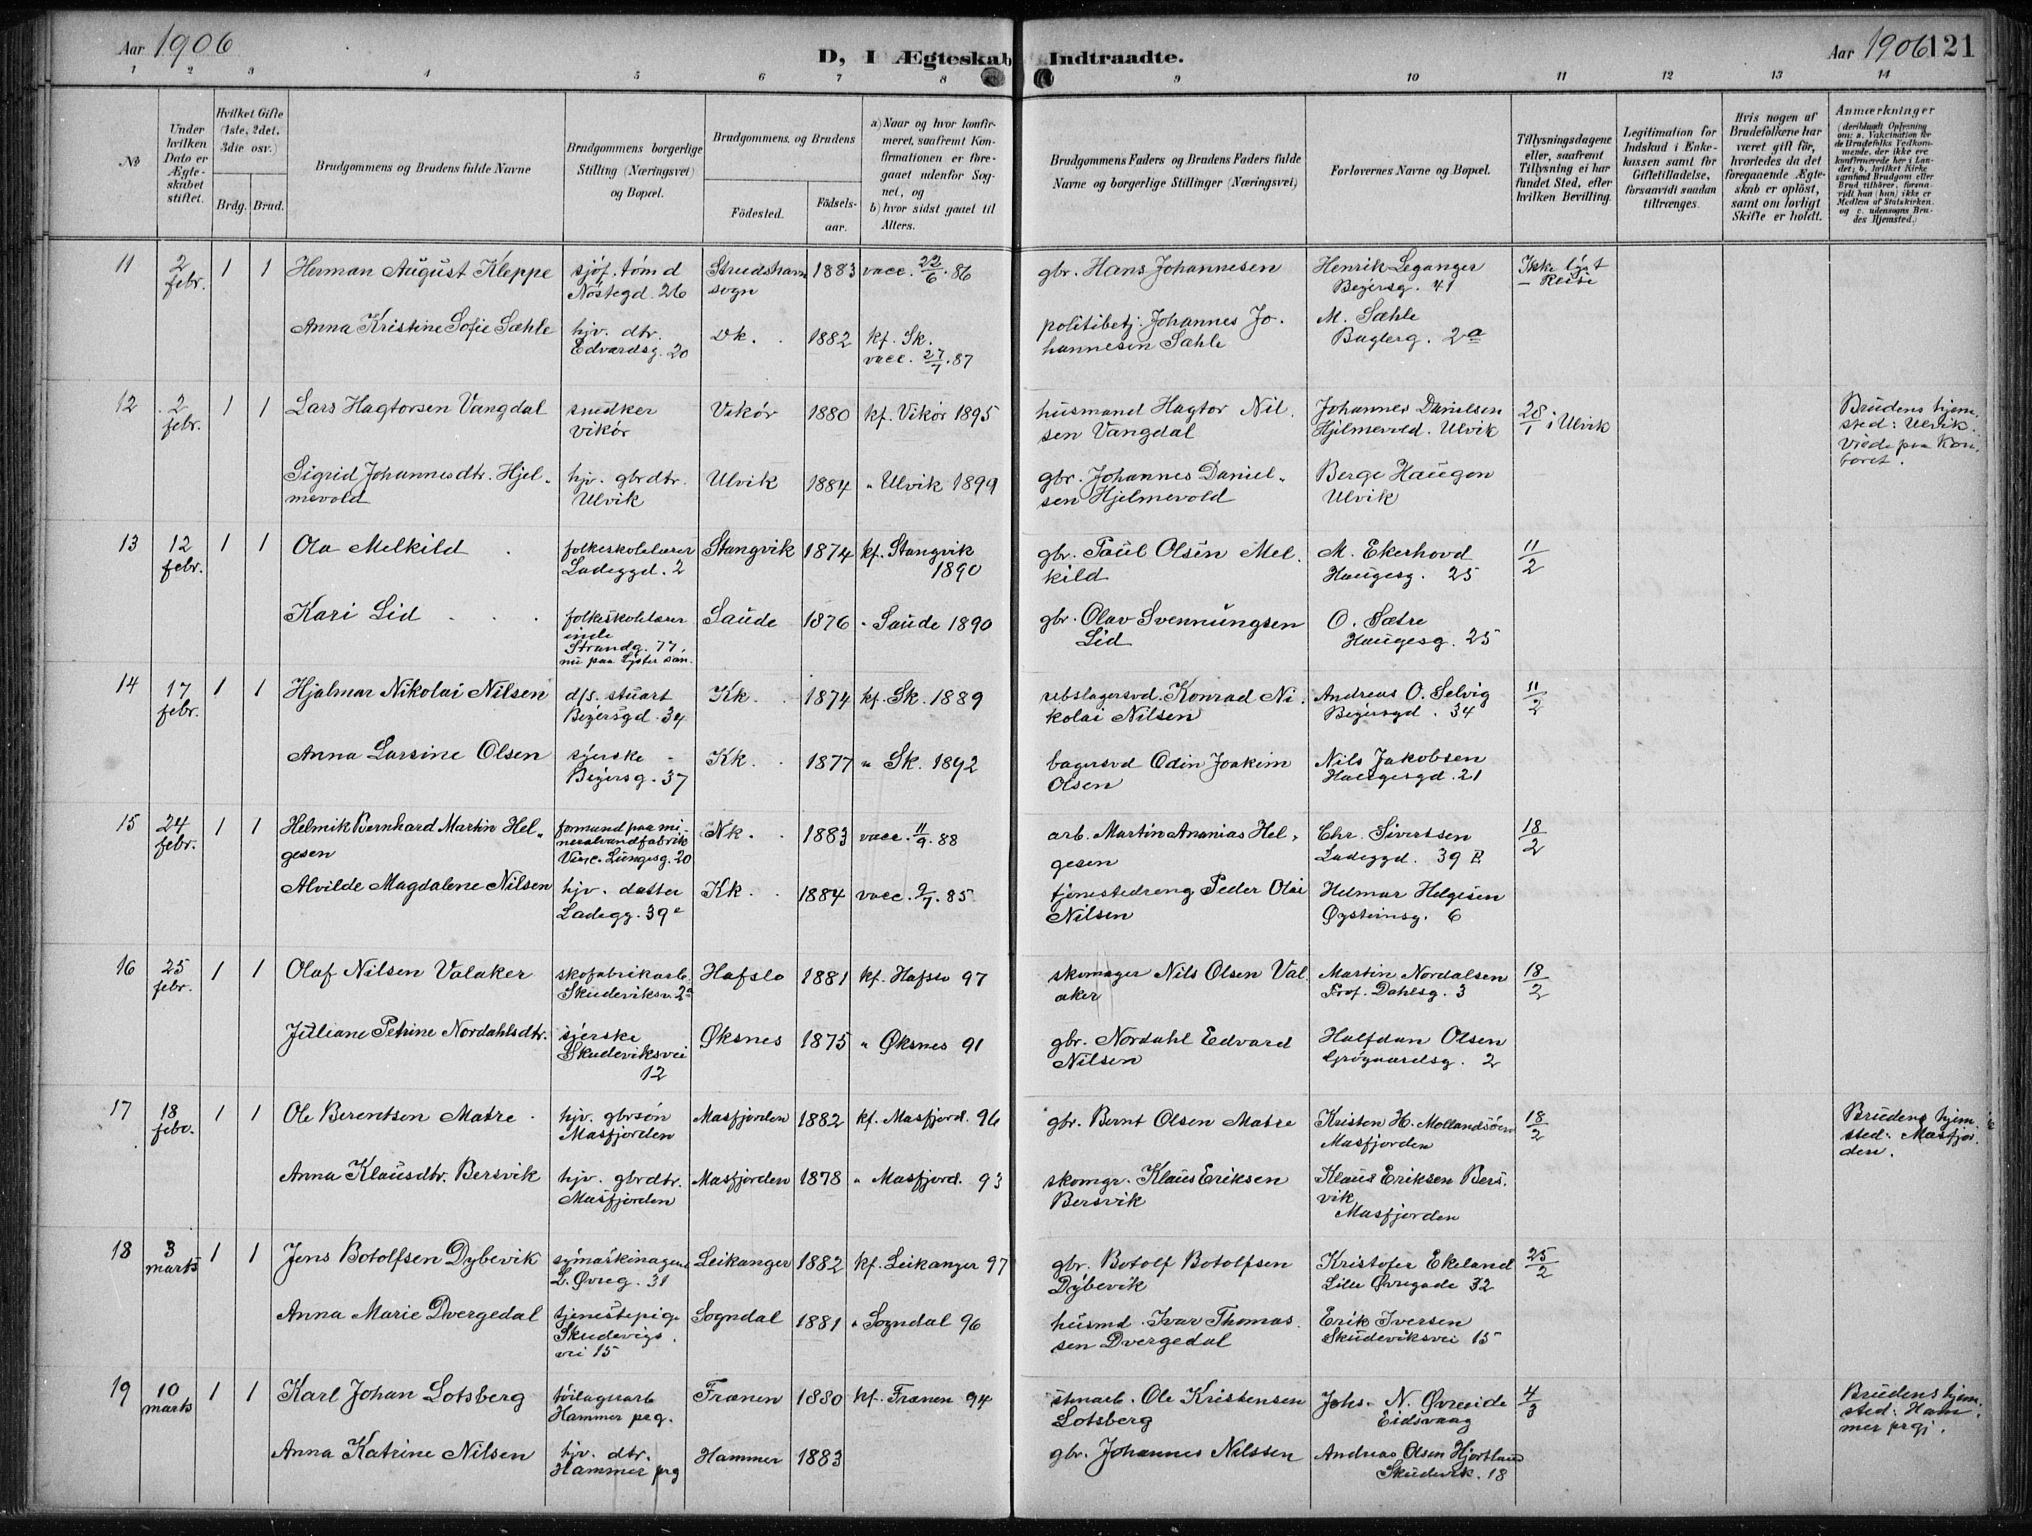 Aar 1906
D, I Ægteskab Indtraadte.
Aar 1906 121
1 2 3 4 5 6 7 8 9 10 11 12 13 14
No
Under hvilken Dato er Ægteskabet stiftet.
Hvilket Gifte (1ste, 2det, 3die osv.)
Brdg. Brud.
Brudgommens og Brudens fulde Navne
Brudgommens borgerlige Stilling (Næringsvei) og Bopæl.
Brudgommens og Brudens
Fødested.
Fødselsaar.
a) Naar og hvor konfirmeret, saafremt Konfirmationen er foregaaet udenfor Sognet, og
b) hvor sidst gaaet til Alters.
Brudgommens Faders og Brudens Faders fulde Navne og borgerlige Stillinger (Næringsvei)
Forlovernes Navne og Bopæl.
Tillysningsdagene eller, saafremt Tillysning ei har fundet Sted, efter hvilken Bevilling.
Legitimation for Indskud i Enkekassen samt for Giftetilladelse, forsaavidt saadan tiltrænges.
Hvis nogen af Brudefolkene har været gift før, hvorledes da det foregaaende Ægteskab er opløst, samt om lovligt Skifte er holdt.
Anmærkninger
(deriblandt Oplysning om: a. Vakcination for de Brudefolks Vedkommende, der ikke ere konfirmerede her i Landet; b. hvilket Kirkesamfund Brudgom eller Brud tilhører, forsaavidt han (hun) ikke er Medlem af Statskirken, og c. udensogns Brudes Hjemsted.)
11 2 febr. 1 1 Herman August Kleppe sjøf. tømd Nøstegd. 26 Strudshavn sogn 1883 vacc. 22/6. 86 gbr. Hans Johannesen Henrik Leganger Beyersg. 41 Ikke lyst – Reise
Anna Kristine Sofie Sæhle hjv. dtr. Edvardsg. 20 Dk. 1882 kf. Sk. vacc. 27/7. 87 politibetj. Johannes Johannesen Sæhle M. Sæhle Baglerg. 2a
12 2 febr. 1 1 Lars Hagtorsen Vangdal snedker Vikør Vikør 1880 kf. Vikør 1895 husmand Hagtor Nilsen Vangdal Johannes Danielsen Hjelmevold. Ulvik 28/1 i Ulvik Brudens hjemsted: Ulvik. Viede paa Kontoret.
Sigrid Johannesdtr. Hjelmevold hjv. gbrdtr. Ulvik Ulvik 1884 " Ulvik 1899 gbr. Johannes Danielsen Hjelmevold Berge Haugen Ulvik
13 12 febr. 1 1 Ola Melkild folkeskolelærer Ladeggd. 2 Stangvik 1874 kf. Stangvik 1890 gbr. Paul Olsen Melkild M. Ekerhovd Haugesg. 25 11/2
Kari Lid folkeskolelærerinde Strandg. 77, nu paa Lyster san. Saude 1876 " Saude 1890 gbr. Olav Svennungsen Lid O. Sætre Haugesg. 25
14 17 febr. 1 1 Hjalmar Nikolai Nilsen d/s. stuart Beyersgd. 34 Kk. 1874 kf. Sk. 1889 rebslagersvd. Konrad Nikolai Nilsen Andreas O. Selvig Beyersgd. 34 11/2
Anna Larsine Olsen syerske Beyersg. 37 Kk. 1877 " Sk. 1892 bagersvd Odin Joakim Olsen Nils Jakobsen Haugesgd. 21
15 24 febr. 1 1 Helmik Bernhard Martin Helgesen formand paa mineralvandfabrik Vinc. Lungesg. 20 Nk. 1883 vacc. 11/9. 88 arb. Martin Ananias Helgesen Chr. Sivertsen Ladeggd. 39 B 18/2
Alvilde Magdalene Nilsen hjv. datter Ladegg. 39 Kk. 1884 vacc. 9/7. 85 tjenestedreng Peder Olai Nilsen Helmar Helgesen Øysteinsg. 6
16 25 febr. 1 1 Olaf Nilsen Valaker skofabrikarb. Skudeviksv. 2a Hafslo 1881 kf. Hafslo 97 skomager Nils Olsen Valaker Martin Nordalsen Prof. Dahlsg. 3 18/2
Juliane Petrine Nordahlsdtr. syerske Skudeviksvei 12 Øksnes 1875 " Øksnes 91 gbr. Nordahl Edvard Nilsen Halfdan Olsen Grøgaardsg. 2
17 18 febr. 1 1 Ole Berentsen Matre hjv. gbrsøn Masfjorden Masfjorden 1882 kf. Masfjord. 96 gbr. Bernt Olsen Matre Kristen H. Mollandsøen Masfjorden 18/2 Brudens hjemsted: Masfjorden.
Anna Klausdtr. Bersvik hjv. gbrdtr. Masfjorden Masfjorden 1878 " Masfjord. 93 skomgr. Klaus Eriksen Bersvik Klaus Eriksen Bersvik Masfjorden
18 3 marts 1 1 Jens Botolfsen Dybevik symaskinagent L. Øvreg. 31 Leikanger 1882 kf. Leikanger 97 gbr. Botolf Botolfsen Dybevik Kristofer Ekeland Lille Øvregade 32 25/2
Anna Marie Dvergedal tjenestepige Skudevigsvei 15 Sogndal 1881 " Sogndal 96 husmd. Ivar Thomassen Dvergedal Erik Iversen Skudeviksvei 15
19 10 marts 1 1 Karl Johan Lotsberg tøilagerarb Hammer prg. Frænen 1880 kf. Frænen 94 Ole Kristensen Lotsberg Johs. N. Øvreeide Eidsvaag 4/3 Brudens hjemsted: Hammer prgj.
Anna Katrine Nilsen hjv. dtr. Hammer prg Hammer 1883 gbr. Johannes Nilssen Andreas Olsen Hjortland Skudevik. 18